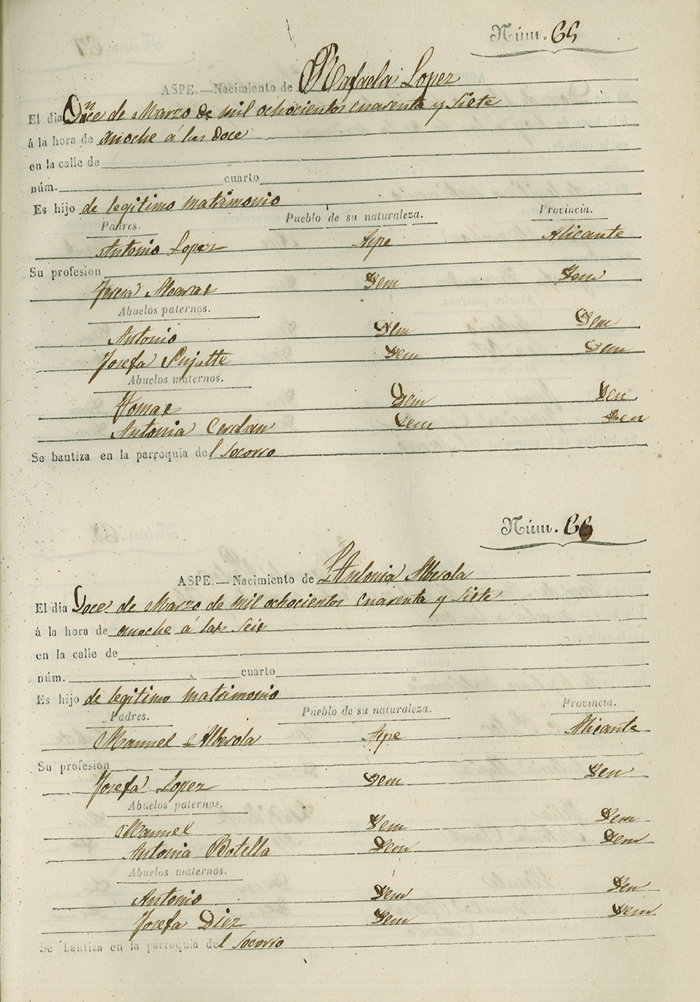 Núm. 65
ASPE.—Nacimiento de Rafaela Lopez
El dia Doce de Marzo de mil ochocientos cuarenta y siete
á la hora de anoche á las doce
en la calle de
núm. cuarto
Es hijo de legitimo matrimonio
Padres. Pueblo de su naturaleza. Provincia.
Antonio Lopez Aspe Alicante
Su profesion
Teresa Idem Idem
Abuelos paternos.
Antonio Idem Idem
Josefa Idem Idem
Abuelos maternos.
Tomas Idem Idem
Antonia Idem Idem
Se bautiza en la parroquia del Socorro
Núm. 66
ASPE.—Nacimiento de Antonia Alberola
El día Doce de Marzo de mil ochocientos cuarenta y siete
á la hora de anoche á las seis
en la calle de
núm. cuarto
Es hijo de legitimo matrimonio
Padres. Pueblo de su naturaleza. Provincia.
Manuel Alberola Aspe Alicante
Su profesion
Josefa Lopez Idem Idem
Abuelos paternos.
Manuel Idem Idem
Antonia Botella Idem Idem
Abuelos maternos.
Antonio Idem Idem
Josefa Diez Idem Idem
Se bautiza en la parroquia del Socorro